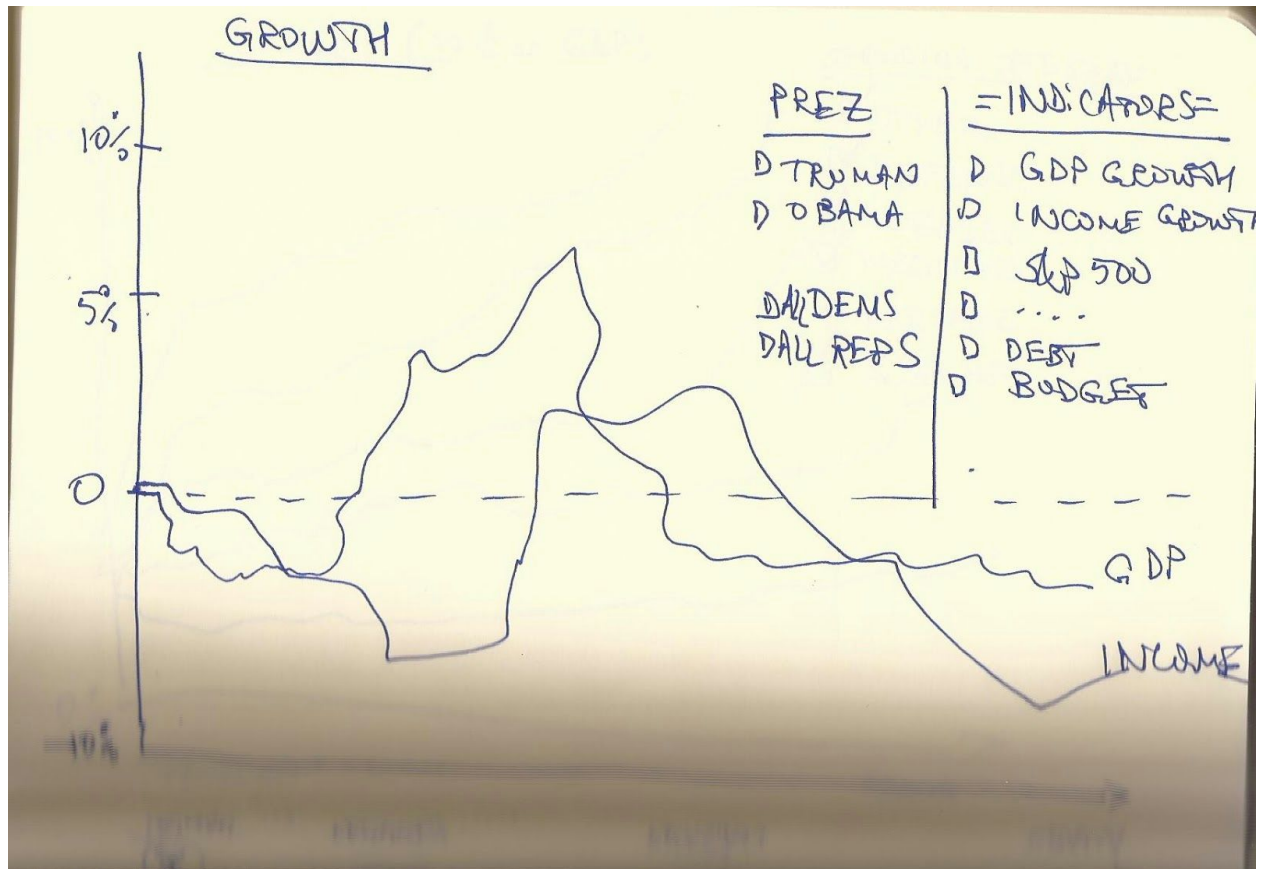 GROWTH
10%
5%
0
-10%
PREZ
TRUMAN
OBAMA
ALL DEMS
ALL REPS
=INDiCATORS=
GDP GROWTH
INCOME GROWTH
S&P 500
....
DEBT
BUDGET
GDP
INCOME